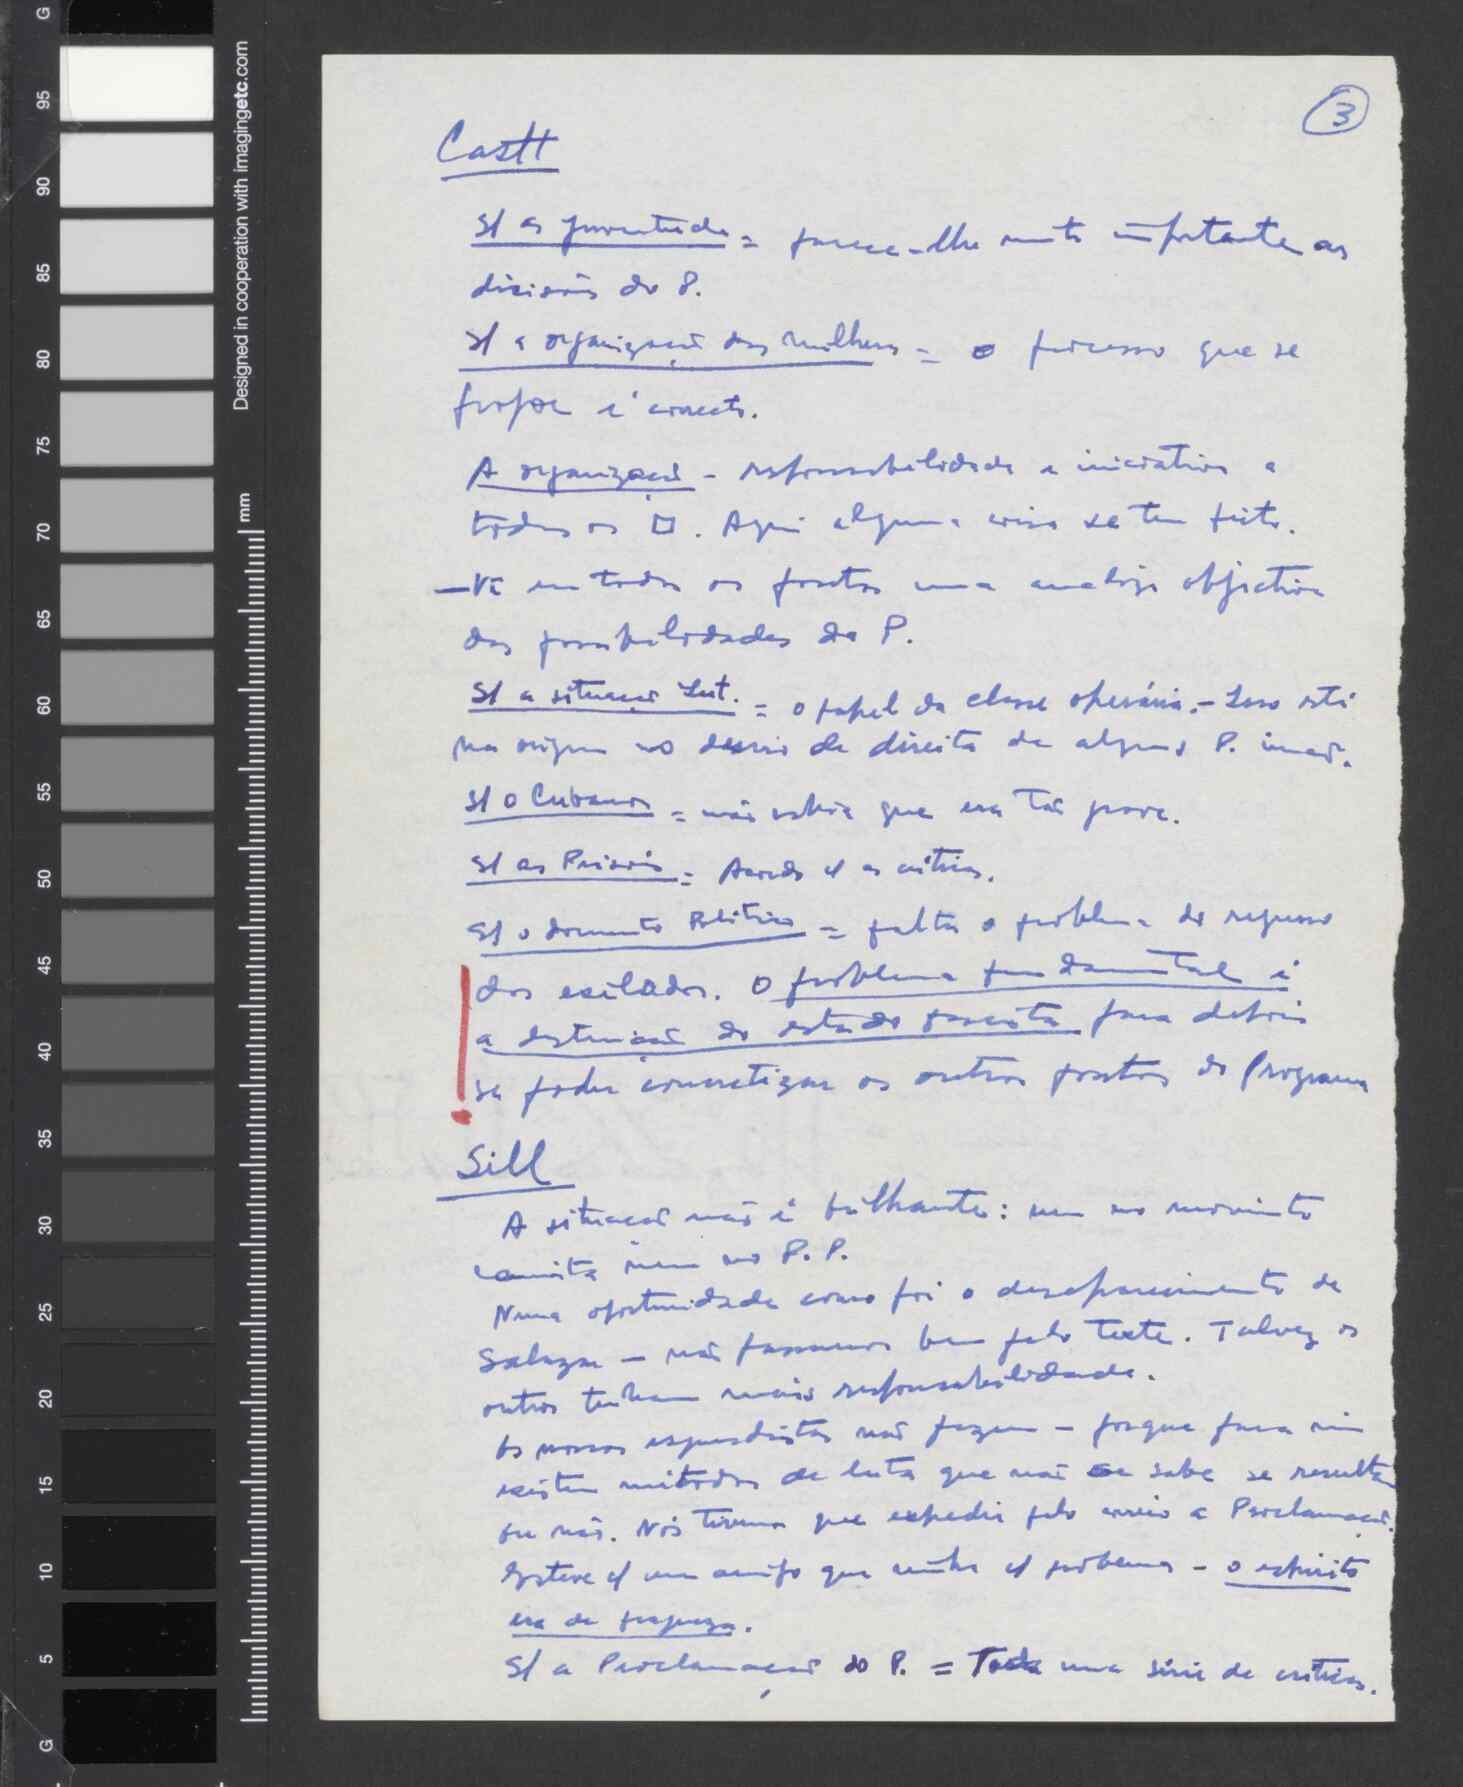 3
Castl
S/ as juventude = parece-lhe muito importante as
divisões do P.
S/ a organização das mulheres = o processo que se
propõe é correcto.
A organização - responsabilidade e iniciativa a
todos os □. Aqui alguma coisa se tem feito.
- Vê em todos os pontos uma análise objectiva
das possibilidades do P.
S/ a situação Int. = o papel da classe operária. - Isso está
na origem no desvio de direita de alguns P. irmãos.
S/ o Cubanos = não sabia que era tão grave.
S/ as Prisões = Acordo c/ as críticas.
S/ o documento Político = falta o problema do regresso
dos exilados. O problema fundamental é
a destruição do estado fascista para depois
se poder concretizar os outros pontos do Programa
Sill
A situação não é brilhante: nem no movimento
comunista nem no P. P.
Numa oportunidade como foi o desaparecimento de
Salazar - não passamos bem pelo teste. Talvez os
outros tenham mais responsabilidade.
Os nossos esquerdistas não fazem - porque para mim
existem métodos de luta que não se sabe se resultam
ou não. Nós tivemos que expedir pelo correio a Proclamação.
Esteve c/ um amigo que vinha c/ problemas - o espírito
era de fraqueza.
S/ a Proclamação do P. = Toda uma série de críticas.
Designed in cooperation with imagingetc.com
mm
G
95
90
85
80
75
70
65
60
55
50
45
40
35
30
25
20
15
10
5
G